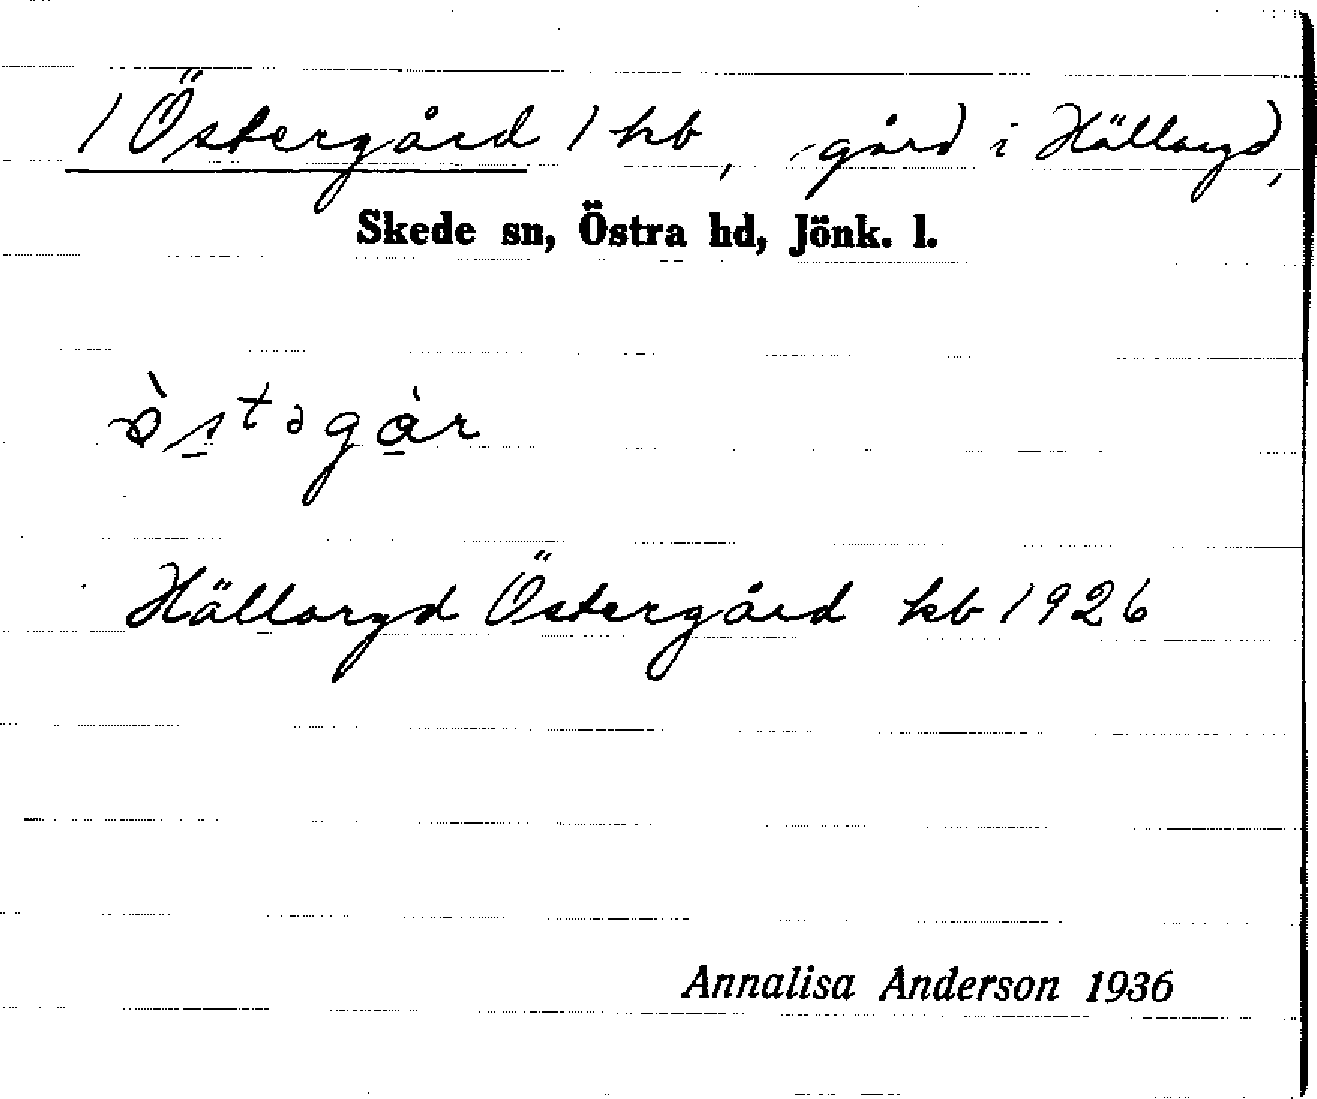 /Östergård/ kb, gård i Hällaryd,
Skede sn, Östra hd, Jönk. l.
Hällaryd Östergård kb 1926
Annalisa Anderson 1936